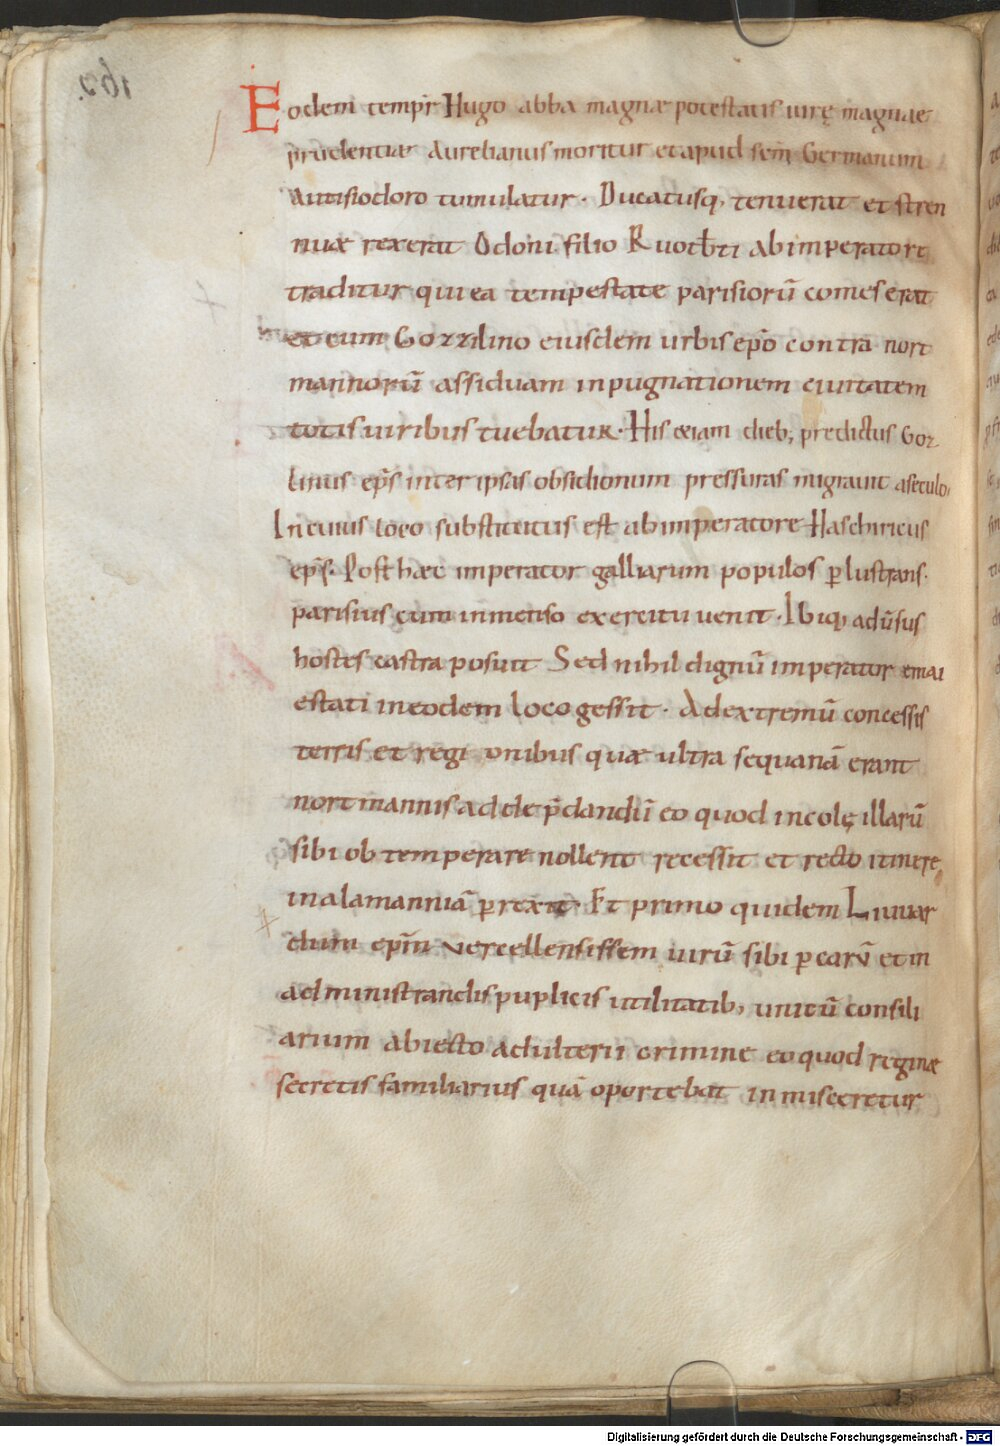 Eodem tempr̄ Hugo abba magnæ potestatis uirę magnae
prudentiae Aurelianus moritur et apud sc̄m Germanum
Autisiodoro tumulatur. Ducatusq, tenuerat et stren
nuæ rexerat Odoni filio Ruotb̄ti ab imperatort
traditur qui ea tempestate parisiorū comes erat
et cum Gozzilino eiusdem urbis ep̄o contra nort
mannorū assiduam inpugnationem ciuitatem
totis uiribus tuebatur. His etiam dieb; predictus Goz
linus ep̄s inter ipsas obsidionum pressuras migrauit a seculo.
In cuius loco substitutus est ab imperatore Haschiricus
ep̄s. Post hæc imperator galliarum populos p̱lustrans.
parisius cum inmenso exercitu uenit. Ibiq, adūsus
hostes castra posuit Sed nihil dignū imperatur emai
estati in eodem loco gessit. Ad extremū concessis
terris et regi onibus quæ ultra sequanā erant
nortmannis ad dep̄dandū eo quod incolę illarū
sibi obtemperare nollent recessit et recto itinere,
in alamanniā p̱rexit. Et primo quidem Liuuar
dum ep̄m uercellensissem uirū sibi p̱carū et in
administrandis puplicis utilitatib; unitū consili
arium abiecto adulterii crimine eo quod reginæ
secretis familiarius quā oportebat inmisceretur
162.
Digitalisierung gefördert durch die Deutsche Forschungsgemeinschaft - DFG